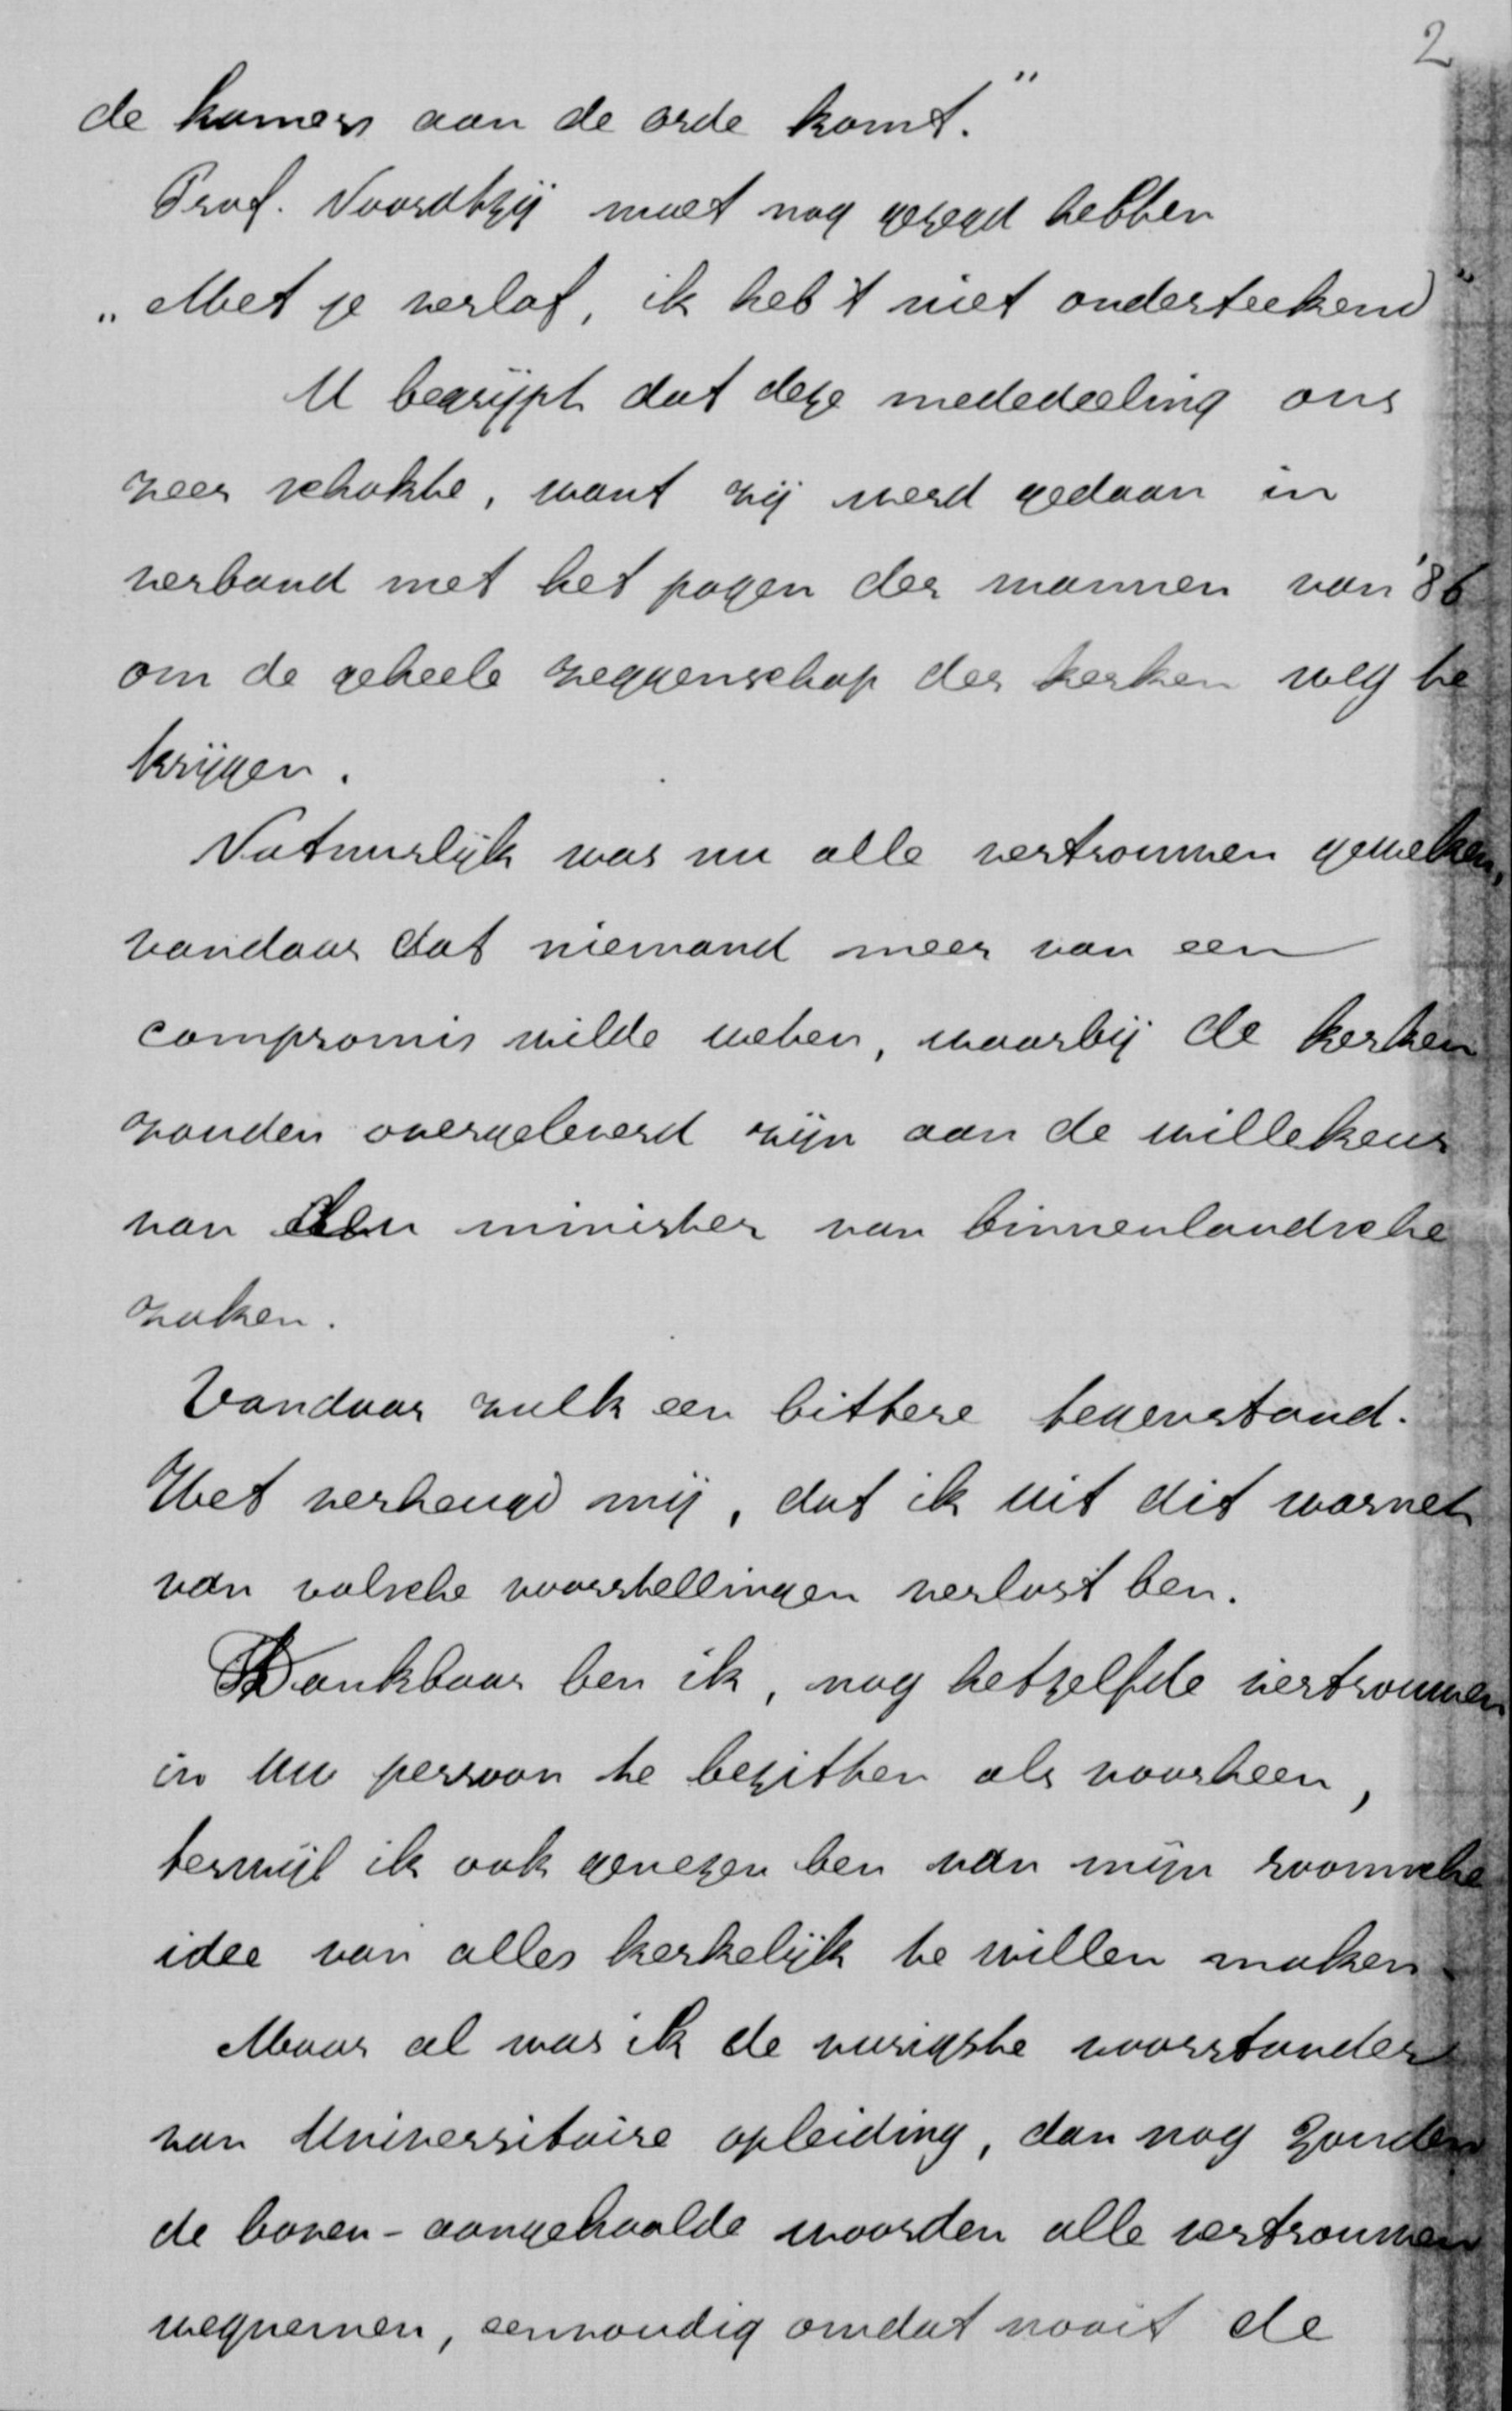 2
de kamers aan de orde komt."
Prof. Noordtzij moet nog gezegd hebben
„Met je verlof, ik heb 't niet onderteekend"
U begrijpt dat deze mededeeling ons
zeer schokte, want zij werd gedaan in
verband met het pogen der mannen van '86
om de geheele zeggenschap der kerken weg te
krijgen.
Natuurlijk was nu alle vertrouwen geweken,
vandaar dat niemand meer van een
compromis wilde weten, waarbij de kerken
zouden overgeleverd zijn aan de willekeur
van den minister van binnenlandsche
zaken.
Vandaar zulk een bittere tegenstand.
Het verheugd mij, dat ik uit dit warnet
van valsche voorstellingen verlost ben.
Dankbaar ben ik, nog hetzelfde vertrouwen
in Uw persoon te bezitten als voorheen,
terwijl ik ook genezen ben van mijn roomsche
idee van alles kerkelijk te willen maken.
Maar al was ik de vurigste voorstander
van Universitaire opleiding, dan nog zouden
de boven-aangehaalde woorden alle vertrouwen
wegnemen, eenvoudig omdat nooit de